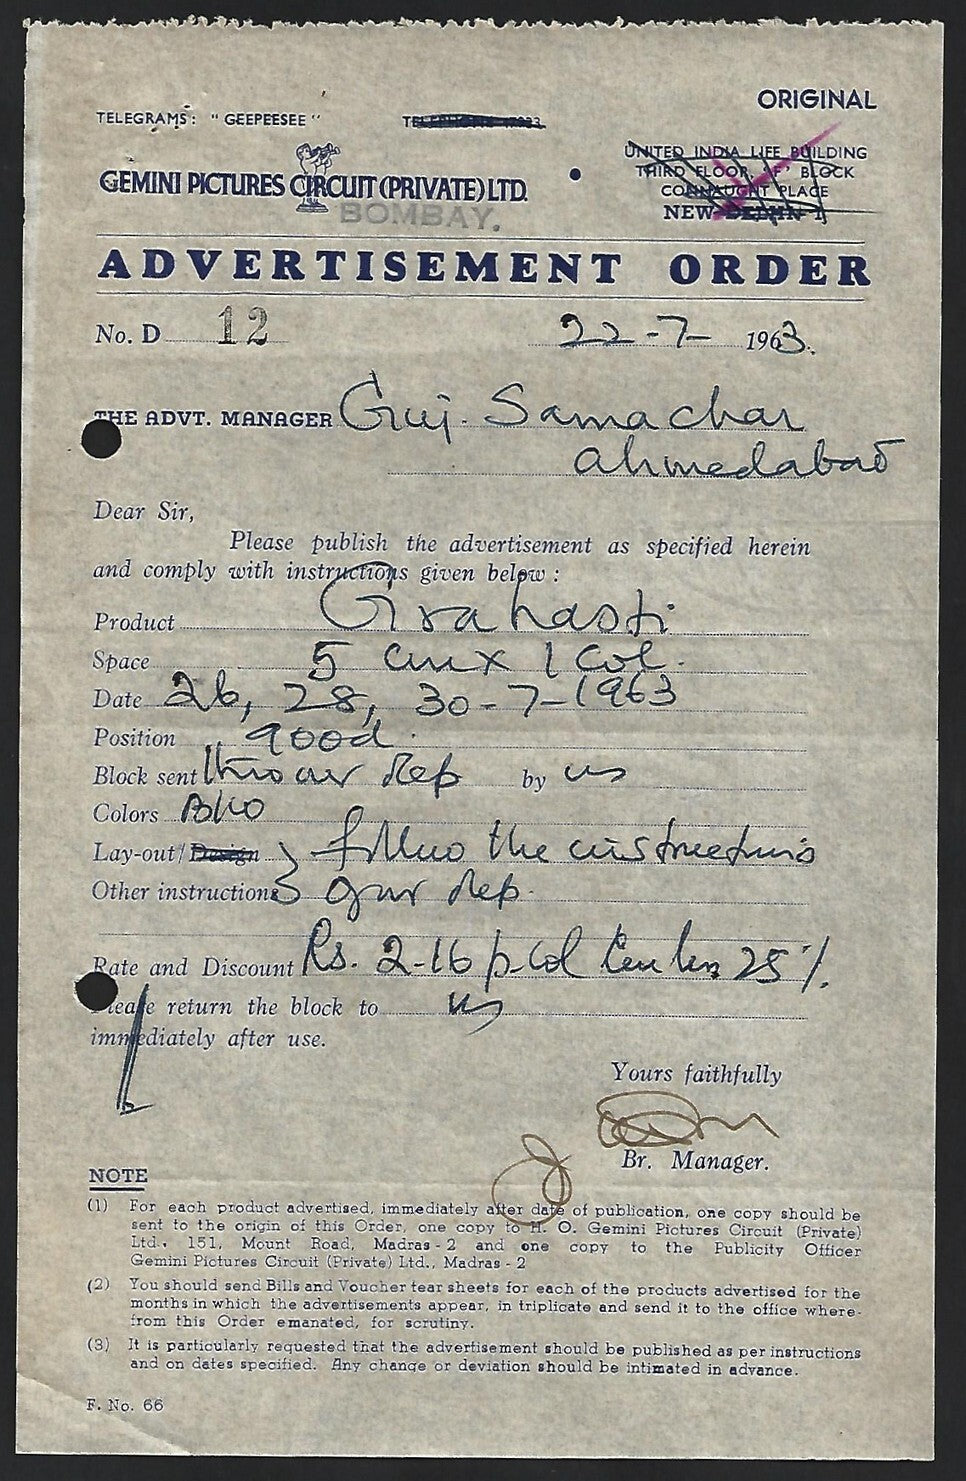 ORIGINAL
TELEGRAMS: "GEEPEESEE"
GEMINI PICTURES CIRCUIT (PRIVATE) LTD.
BOMBAY.
UNITED INDIA LIFE BUILDING
THIRD FLOOR, 'F' BLOCK
CONNAUGHT PLACE
NEW DELHI-1
ADVERTISEMENT ORDER
No. D 12 22-7- 1963.
THE ADVT. MANAGER Guj. Samachar
Ahmedabad
Dear Sir,
Please publish the advertisement as specified herein
and comply with instructions given below :
Product Grahasti
Space 5 cm x 1 Col.
Date 26, 28, 30-7-1963
Position good.
Block sent thro our Rep by us
Colors
Lay-out/Design follow the instructions
Other instructions of our Rep.
Rate and Discount Rs. 2-16 p. Col 25%
Please return the block to us
immediately after use.
Yours faithfully
Br. Manager.
NOTE
(1) For each product advertised, immediately after date of publication, one copy should be
sent to the origin of this Order, one copy to H. O. Gemini Pictures Circuit (Private)
Ltd., 151, Mount Road, Madras-2 and one copy to the Publicity Officer
Gemini Pictures Circuit (Private) Ltd., Madras-2
(2) You should send Bills and Voucher tear sheets for each of the products advertised for the
months in which the advertisements appear, in triplicate and send it to the office where-
from this Order emanated, for scrutiny.
(3) It is particularly requested that the advertisement should be published as per instructions
and on dates specified. Any change or deviation should be intimated in advance.
F. No. 66